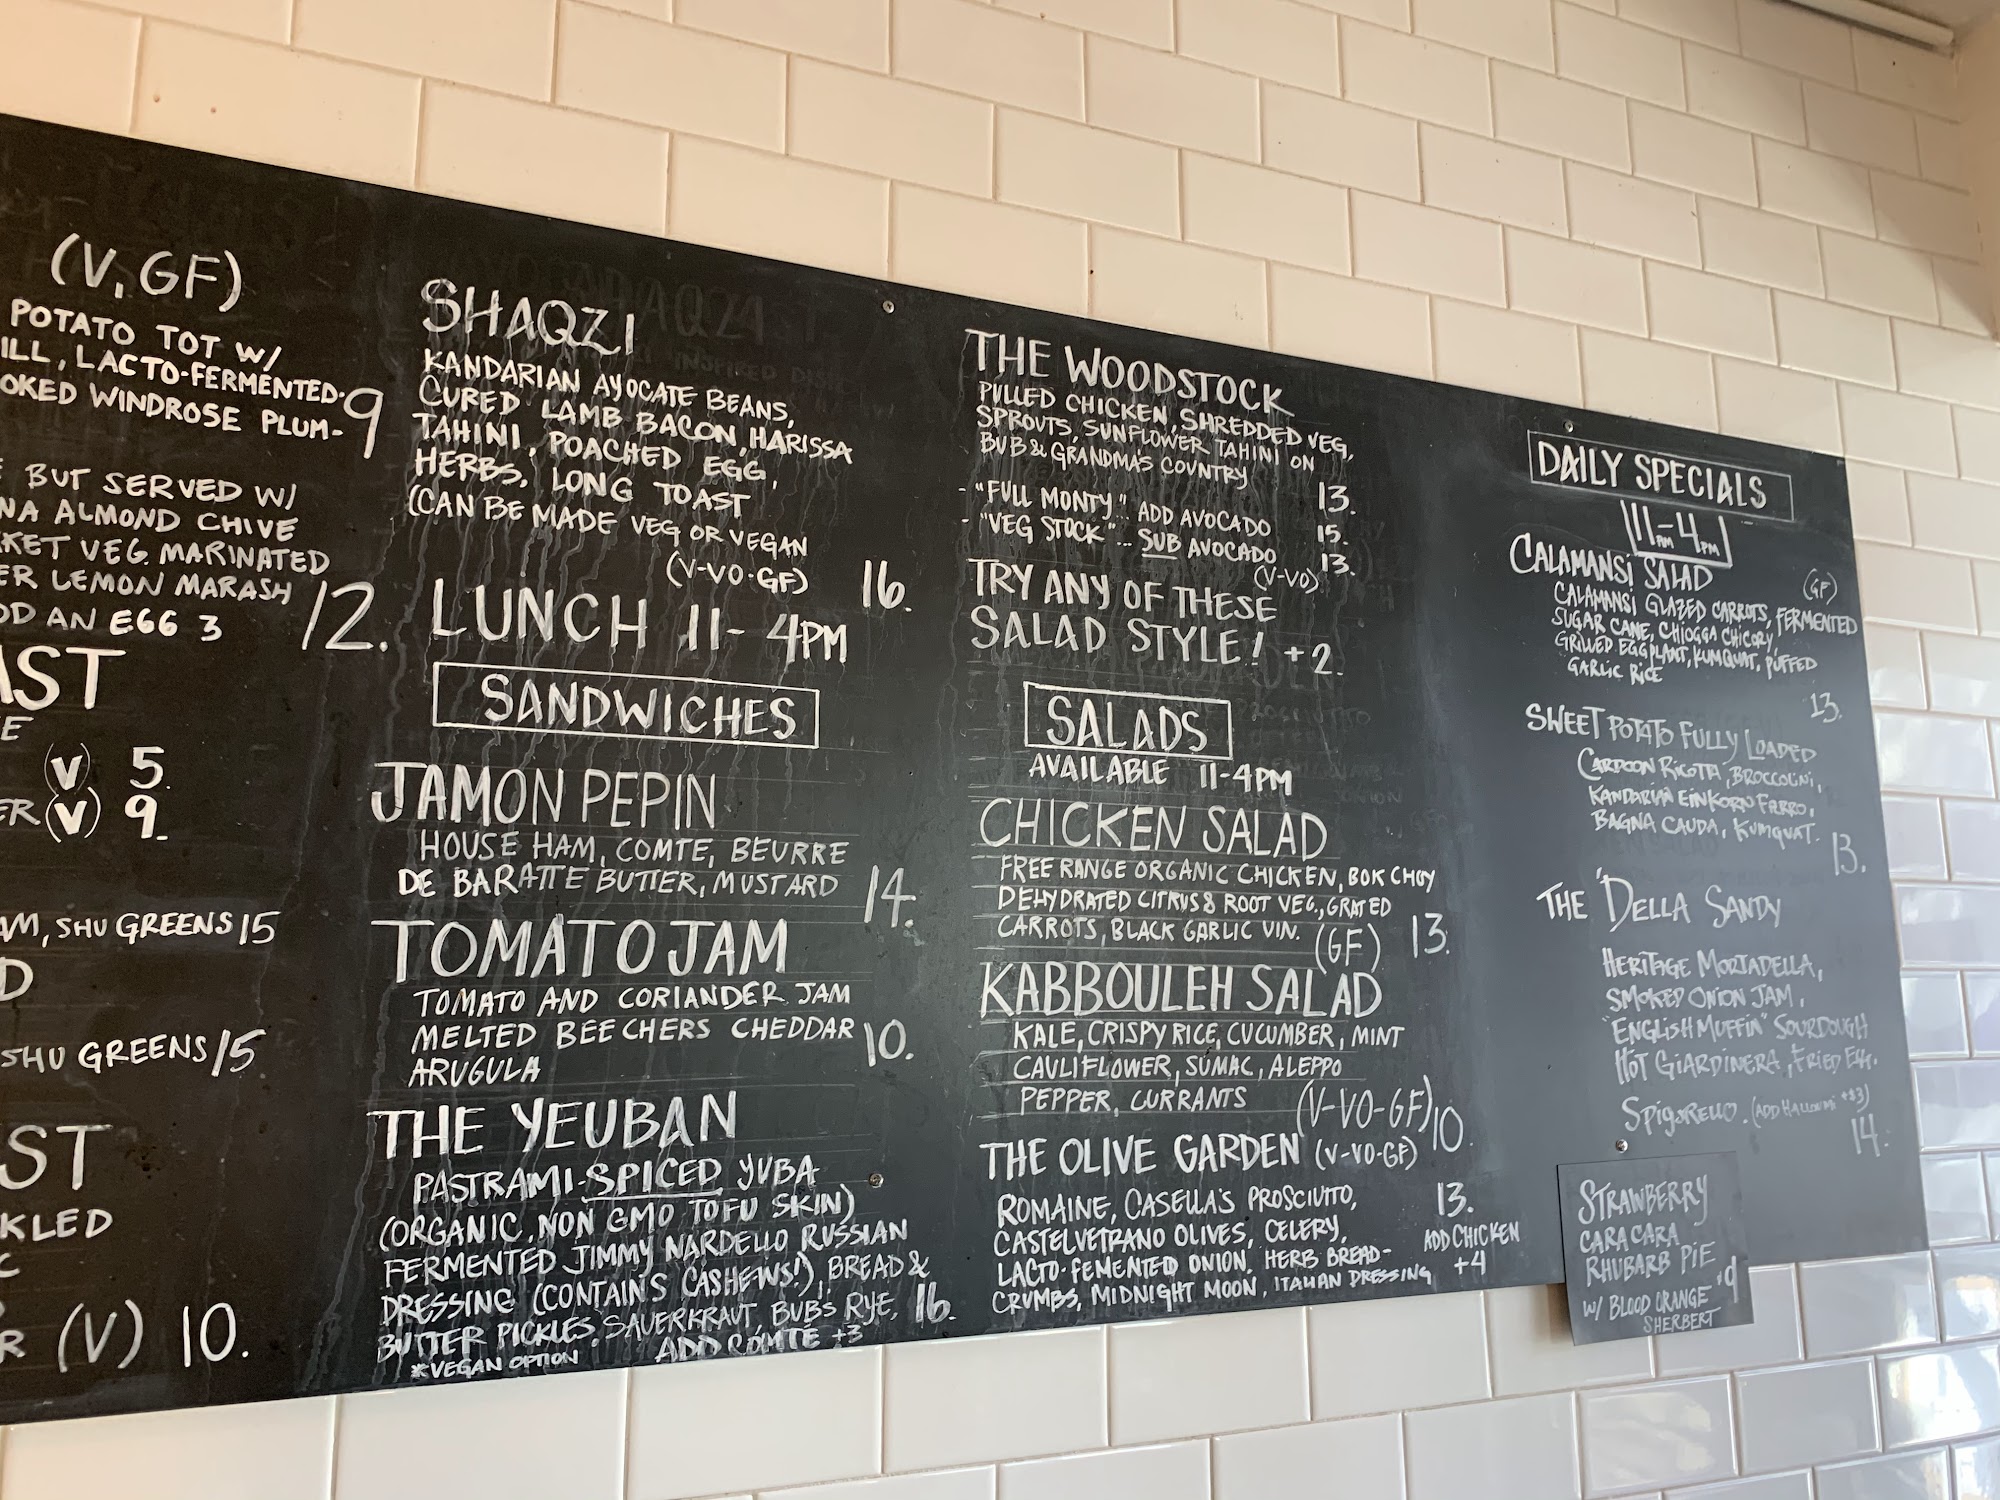 (V, GF)
POTATO TOT W/
ILL, LACTO-FERMENTED-
OKED WINDROSE PLUM-
9
BUT SERVED W/
NA ALMOND CHIVE
KET VEG. MARINATED
ER LEMON MARASH
DD AN EGG 3
12.
AST
E
(V) 5.
ER (V) 9.
AM, SHU GREENS 15
D
SHU GREENS 15.
ST
KLED
C
R (V) 10.
SHAQZI
KANDARIAN AYOCATE BEANS,
CURED LAMB BACON, HARISSA
TAHINI, POACHED EGG,
HERBS, LONG TOAST
(CAN BE MADE VEG OR VEGAN
(V-VO-GF)
16.
LUNCH 11-4PM
SANDWICHES
JAMON PEPIN
HOUSE HAM, COMTE, BEURRE
DE BARATTE BUTTER, MUSTARD
14.
TOMATO JAM
TOMATO AND CORIANDER JAM
MELTED BEECHERS CHEDDAR
ARUGULA
10.
THE YEUBAN
PASTRAMI-SPICED YUBA
(ORGANIC, NON GMO TOFU SKIN)
FERMENTED JIMMY NARDELLO RUSSIAN
DRESSING (CONTAINS CASHEWS!), BREAD &
BUTTER PICKLES SAUERKRAUT, BUBS RYE, 16.
*VEGAN OPTION ADD COMTÉ +3
THE WOODSTOCK
PULLED CHICKEN, SHREDDED VEG,
SPROUTS, SUNFLOWER TAHINI ON
BUB & GRANDMA'S COUNTRY
13.
- "FULL MONTY".. ADD AVOCADO 15.
- "VEG STOCK"... SUB AVOCADO 13.
(V-VO)
TRY ANY OF THESE
SALAD STYLE! +2.
SALADS
AVAILABLE 11-4PM
CHICKEN SALAD
FREE RANGE ORGANIC CHICKEN, BOK CHOY
DEHYDRATED CITRUS & ROOT VEG., GRATED
CARROTS, BLACK GARLIC VIN. (GF) 13.
KABBOULEH SALAD
KALE, CRISPY RICE, CUCUMBER, MINT
CAULIFLOWER, SUMAC, ALEPPO
PEPPER, CURRANTS (V-VO-GF) 10.
THE OLIVE GARDEN (V-VO-GF)
ROMAINE, CASELLA'S PROSCIUTTO, 13.
CASTELVETRANO OLIVES, CELERY, ADD CHICKEN
LACTO-FEMENTED ONION. HERB BREAD- +4
CRUMBS, MIDNIGHT MOON, ITALIAN DRESSING
DAILY SPECIALS
11AM-4PM
CALAMANSI SALAD (GF)
CALAMANSI GLAZED CARROTS, FERMENTED
SUGAR CANE, CHIOGGA CHICORY,
GRILLED EGGPLANT, KUMQUAT, PUFFED
GARLIC RICE
13.
SWEET POTATO FULLY LOADED
CARDOON RICOTTA, BROCCOLINI,
KANDARIAN EINKORN FARRO,
BAGNA CAUDA, KUMQUAT.
13.
THE 'DELLA SANDY
HERITAGE MORTADELLA,
SMOKED ONION JAM,
"ENGLISH MUFFIN" SOURDOUGH
HOT GIARDINERA, FRIED EGG.
SPIGARELLO. (ADD HALLOUMI +$3)
14.
STRAWBERRY
CARA CARA
RHUBARB PIE
9
W/ BLOOD ORANGE
SHERBERT